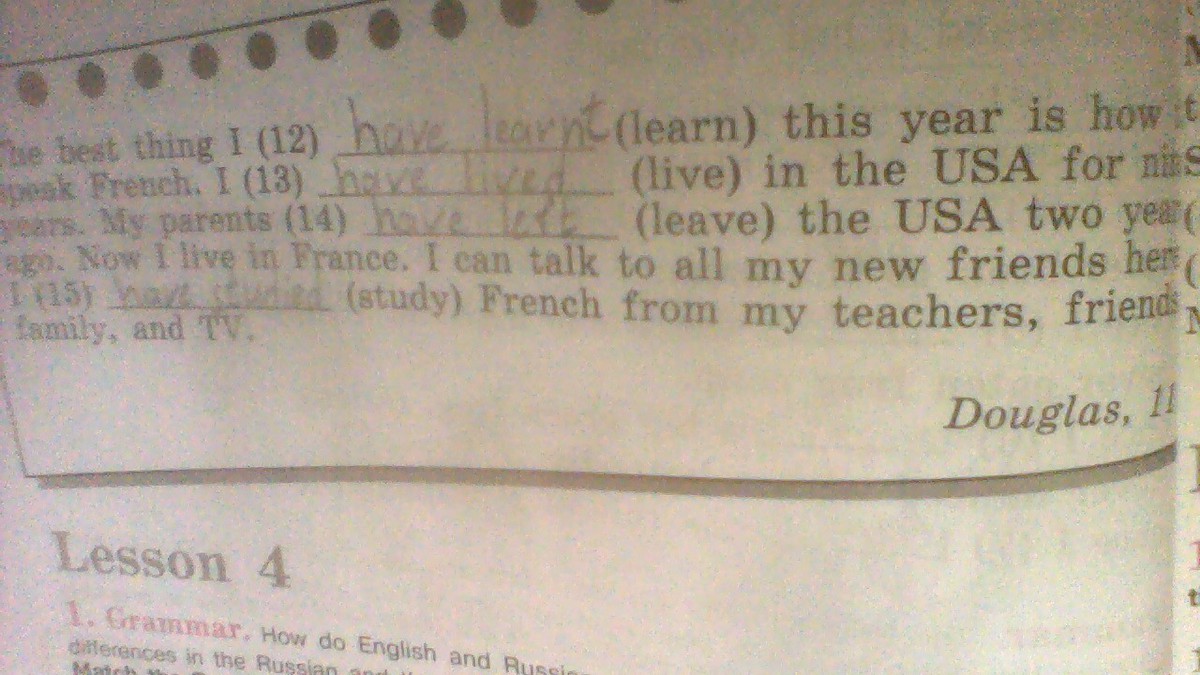 The best thing I (12) have learnt (learn) this year is how
speak French. I (13) have lived (live) in the USA for
years. My parents (14) have left (leave) the USA two year
ago. Now I live in France. I can talk to all my new friends her
I (15) have studied (study) French from my teachers, friends
family, and TV.
Douglas, 11
Lesson 4
1. Grammar. How do English and
differences in the Russian
Match the